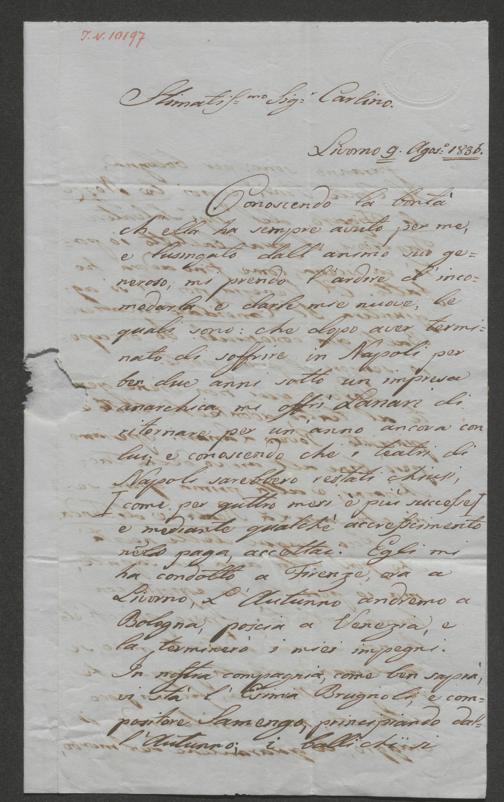 J.N. 10197
Stimatiss.mo Sig.r Carlino.
Livorno 9. Agos.o 1836.
Conoscendo la bontà
ch'ella ha sempre avuto per me,
e lusingato dall'animo suo ge-
neroso, mi prendo l'ardire d'inco-
modarla, e darle mie nuove, le
quali sono: che dopo aver termi-
nato di soffrire in Napoli per
ben due anni sotto un impresa
anarchica, mi offrì Lanari di
ritornare per un anno ancora con
lui, e conoscendo che i teatri di
Napoli sarebbero restati chiusi,
come per quattro mesi e più successe
e mediante qualche accrescimento
nella paga, accettai. Egli mi
ha condotto a Firenze, ora a
Livorno, L'Autunno andremo a
Bologna, poscia a Venezia, e
la terminerò i miei impegni.
In nostra compagnia, come ben saprà,
vi stà l'Esimia Brugnoli, e com-
positore Samengo, principiando dal-
l'Autunno; i balli chiusi